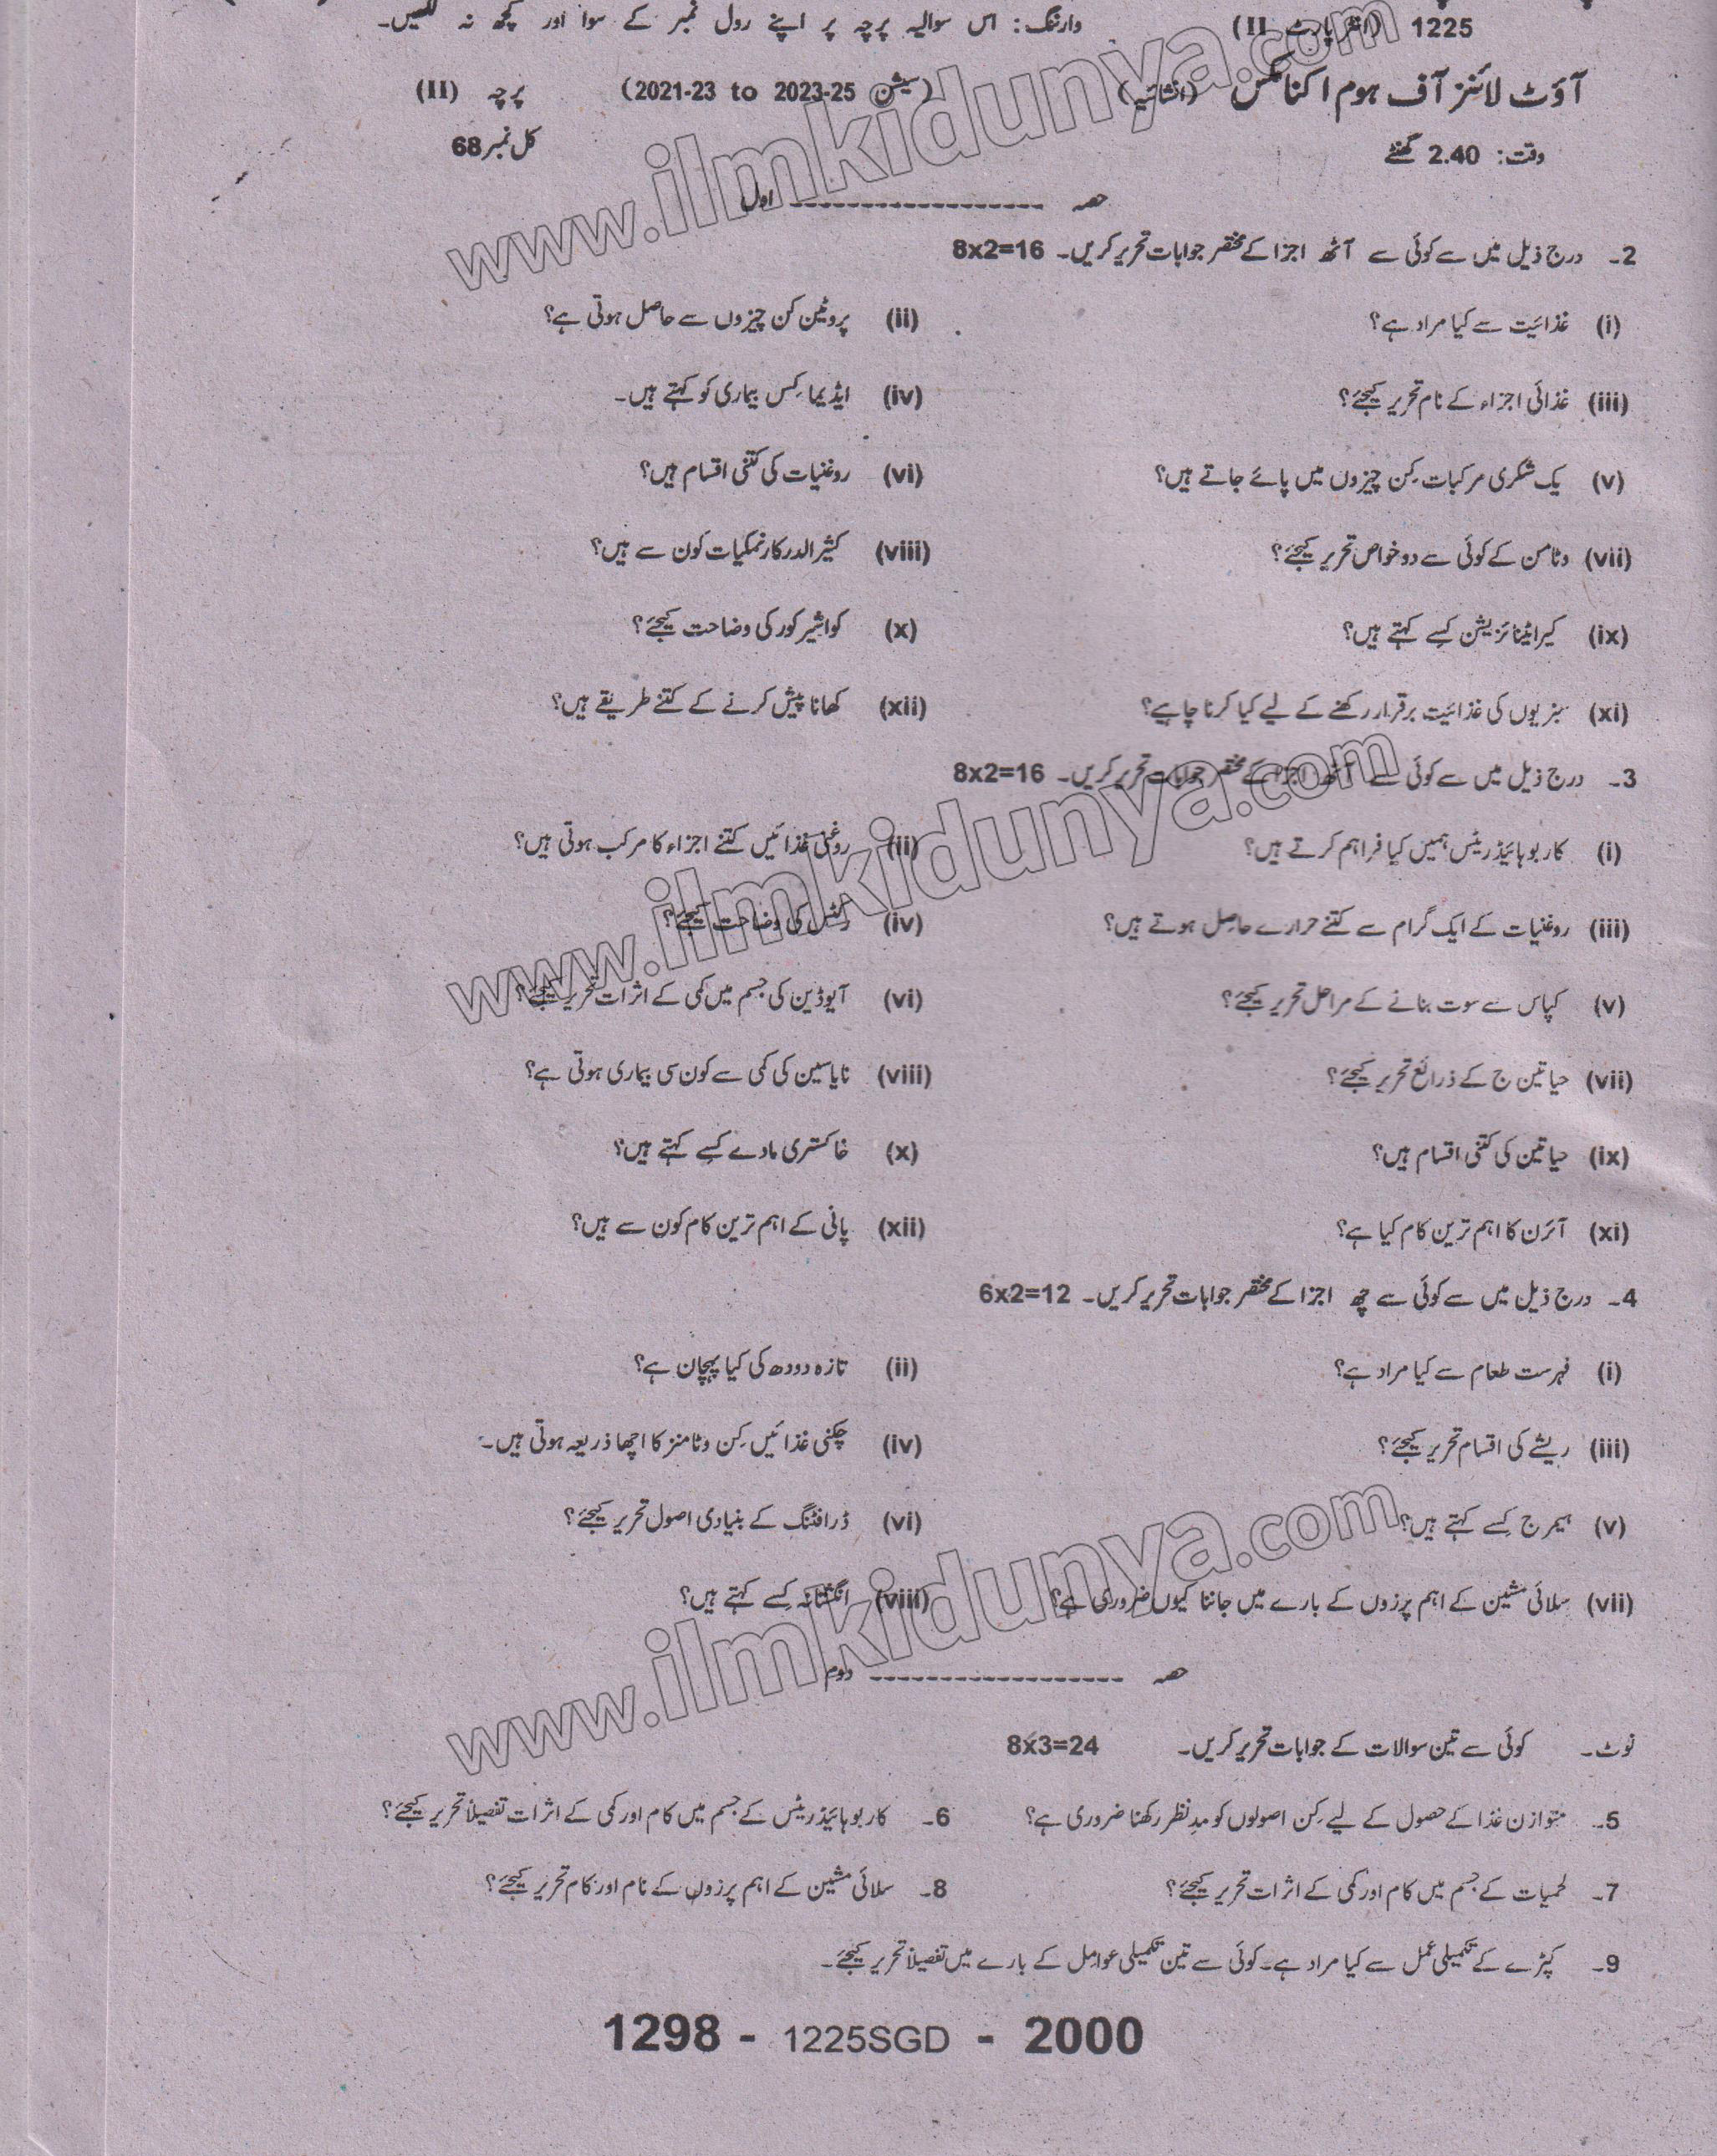 1225 (انٹر پارٹ II) وارننگ: اس سوالیہ پرچہ پر اپنے رول نمبر کے سوا اور کچھ نہ لکھیں۔
آؤٹ لائنز آف ہوم اکنامکس (انشائیہ) (سیشن 2021-23 to 2023-25) پرچہ (II)
وقت: 2.40 گھنٹے کل نمبر 68
حصہ ------------------- اول
2۔ درج ذیل میں سے کوئی سے آٹھ اجزا کے مختصر جوابات تحریر کریں۔ 8x2=16
(i) غذائیت سے کیا مراد ہے؟ (ii) پروٹین کن چیزوں سے حاصل ہوتی ہے؟
(iii) غذائی اجزاء کے نام تحریر کیجئے؟ (iv) ایڈیما کِس بیماری کو کہتے ہیں۔
(v) یک شکری مرکبات کِن چیزوں میں پائے جاتے ہیں؟ (vi) روغنیات کی کتنی اقسام ہیں؟
(vii) وٹامن کے کوئی سے دو خواص تحریر کیجئے؟ (viii) کثیر المقدار نمکیات کون سے ہیں؟
(ix) کیراٹینائزیشن کِسے کہتے ہیں؟ (x) کواشیرکور کی وضاحت کیجئے؟
(xi) سبزیوں کی غذائیت برقرار رکھنے کے لیے کیا کرنا چاہیے؟ (xii) کھانا پیش کرنے کے کتنے طریقے ہیں؟
3۔ درج ذیل میں سے کوئی سے آٹھ اجزا کے مختصر جوابات تحریر کریں۔ 8x2=16
(i) کاربوہائیڈریٹس ہمیں کیا فراہم کرتے ہیں؟ (ii) روغنی غذائیں کتنے اجزاء کا مرکب ہوتی ہیں؟
(iii) روغنیات کے ایک گرام سے کتنے حرارے حاصِل ہوتے ہیں؟ (iv) رکٹس کی وضاحت کیجئے؟
(v) کپاس سے سوت بنانے کے مراحل تحریر کیجئے؟ (vi) آیوڈین کی جسم میں کمی کے اثرات تحریر کیجئے؟
(vii) حیاتین ج کے ذرائع تحریر کیجئے؟ (viii) نایاسین کی کمی سے کون سی بیماری ہوتی ہے؟
(ix) حیاتین کی کتنی اقسام ہیں؟ (x) خاکستری مادے کِسے کہتے ہیں؟
(xi) آئرن کا اہم ترین کام کیا ہے؟ (xii) پانی کے اہم ترین کام کون سے ہیں؟
4۔ درج ذیل میں سے کوئی سے چھ اجزا کے مختصر جوابات تحریر کریں۔ 6x2=12
(i) فہرست طعام سے کیا مراد ہے؟ (ii) تازہ دودھ کی کیا پہچان ہے؟
(iii) ریشے کی اقسام تحریر کیجئے؟ (iv) چکنی غذائیں کِن وٹامنز کا اچھا ذریعہ ہوتی ہیں۔
(v) ہیمرج کِسے کہتے ہیں؟ (vi) ڈرافٹنگ کے بنیادی اصول تحریر کیجئے؟
(vii) سلائی مشین کے اہم پرزوں کے بارے میں جاننا کیوں ضروری ہے؟ (viii) انگشتانہ کِسے کہتے ہیں؟
حصہ ------------------- دوم
نوٹ۔ کوئی سے تین سوالات کے جوابات تحریر کریں۔ 8x3=24
5۔ متوازن غذا کے حصول کے لیے کِن اصولوں کو مدِنظر رکھنا ضروری ہے؟ 6۔ کاربوہائیڈریٹس کے جسم میں کام اور کمی کے اثرات تفصیلاً تحریر کیجئے؟
7۔ لحمیات کے جسم میں کام اور کمی کے اثرات تحریر کیجئے؟ 8۔ سلائی مشین کے اہم پرزوں کے نام اور کام تحریر کیجئے؟
9۔ کپڑے کے تکمیلی عمل سے کیا مراد ہے۔ کوئی سے تین تکمیلی عوامل کے بارے میں تفصیلاً تحریر کیجئے۔
1298 - 1225SGD - 2000
www.ilmkidunya.com
www.ilmkidunya.com
www.ilmkidunya.com